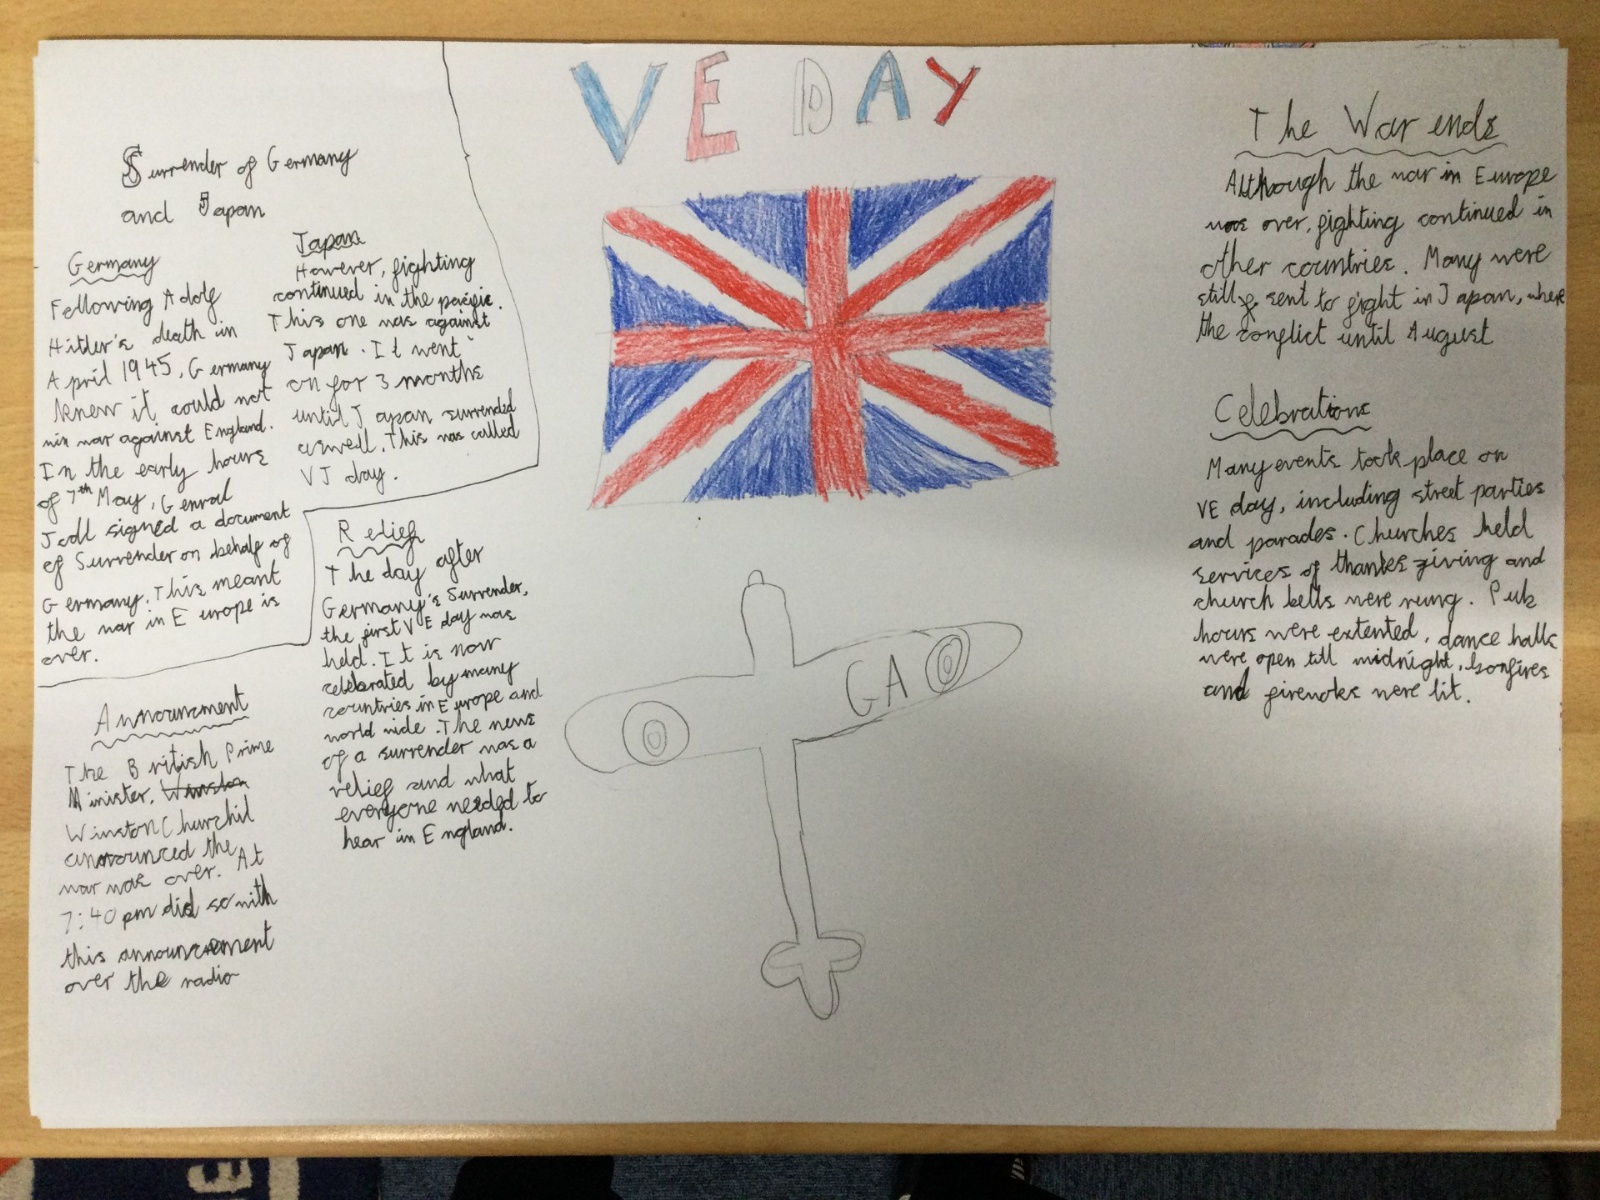 VE DAY
Surrender of Germany
and Japan
Germany
Following Adolf
Hitler's death in
April 1945, Germany
knew it could not
win war against England.
In the early hours
of 7th May, Genral
Jodl signed a document
of Surrender on behalf of
Germany. This meant
the war in Europe is
over.
Japan
However, fighting
continued in the pacific.
This one was against
Japan. It went
on for 3 months
until Japan surrended
aswell. This was called
VJ day.
Relief
The day after
Germany's Surrender,
the first VE day was
held. It is now
celebrated by many
countries in Europe and
world wide. The news
of a surrender was a
relief and what
everyone needed to
hear in England.
Announcement
The British Prime
Minister, Winston
Winston Churchil
announced the
war was over. At
7:40 pm did so with
this announcement
over the radio
GA
The War ends
Although the war in Europe
was over, fighting continued in
other countries. Many were
still sent to fight in Japan, where
the conflict until August
Celebrations
Many events took place on
VE day, including street parties
and parades. Churches held
services of thanks giving and
church bells were rung. Pub
hours were extented, dance halls
were open till midnight, bonfires
and fireworks were lit.